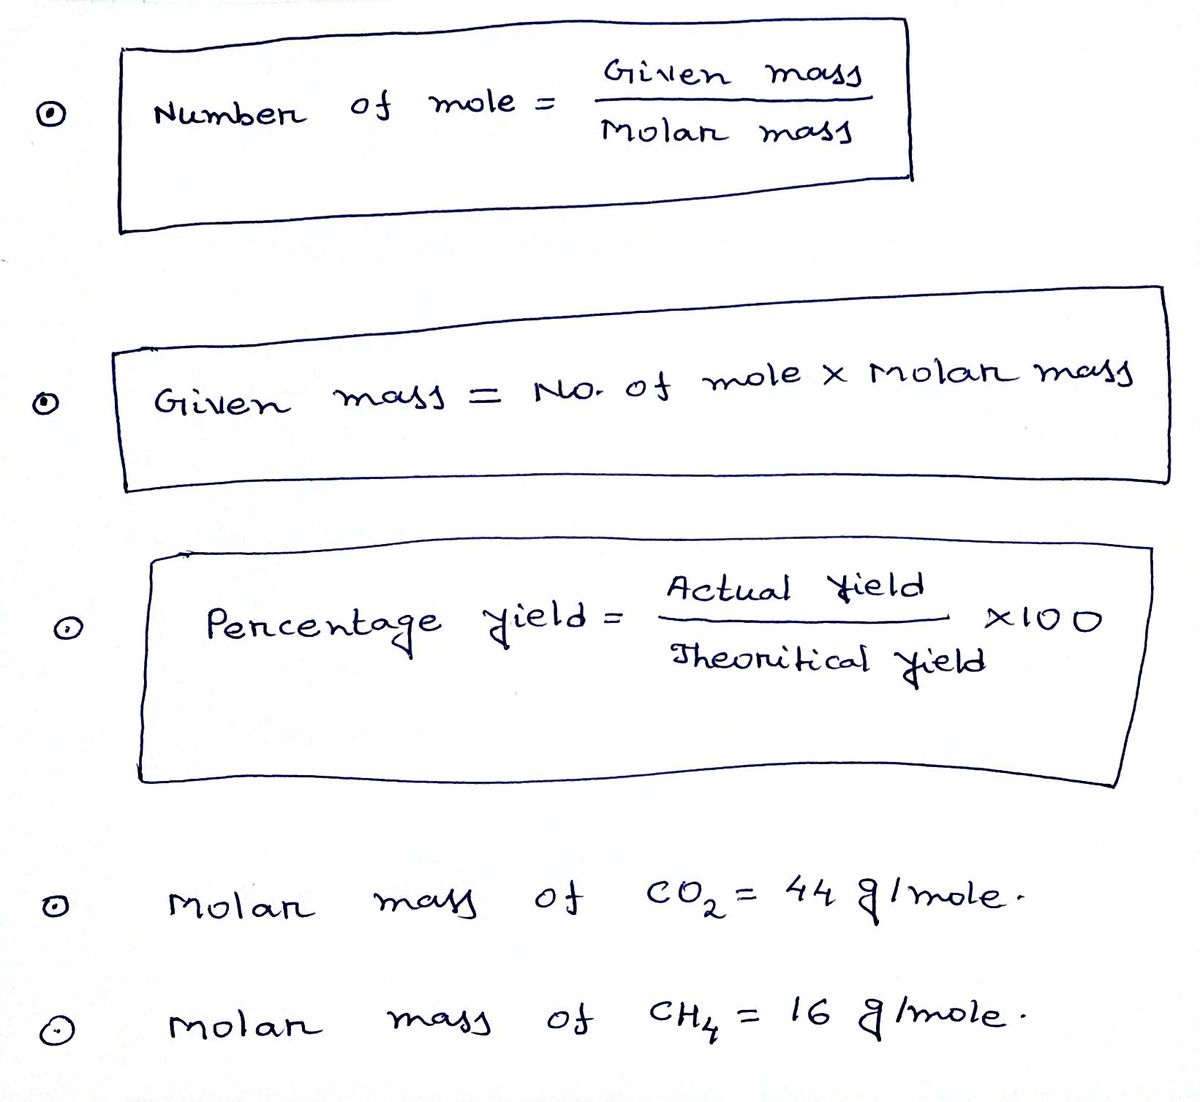 ⊙ Number of mole = Given mass / Molar mass
⊙ Given mass = No. of mole × Molar mass
⊙ Percentage yield = Actual yield / Theoritical yield ×100
⊙ Molar mass of CO₂ = 44 g/mole.
⊙ Molar mass of CH₄ = 16 g/mole.